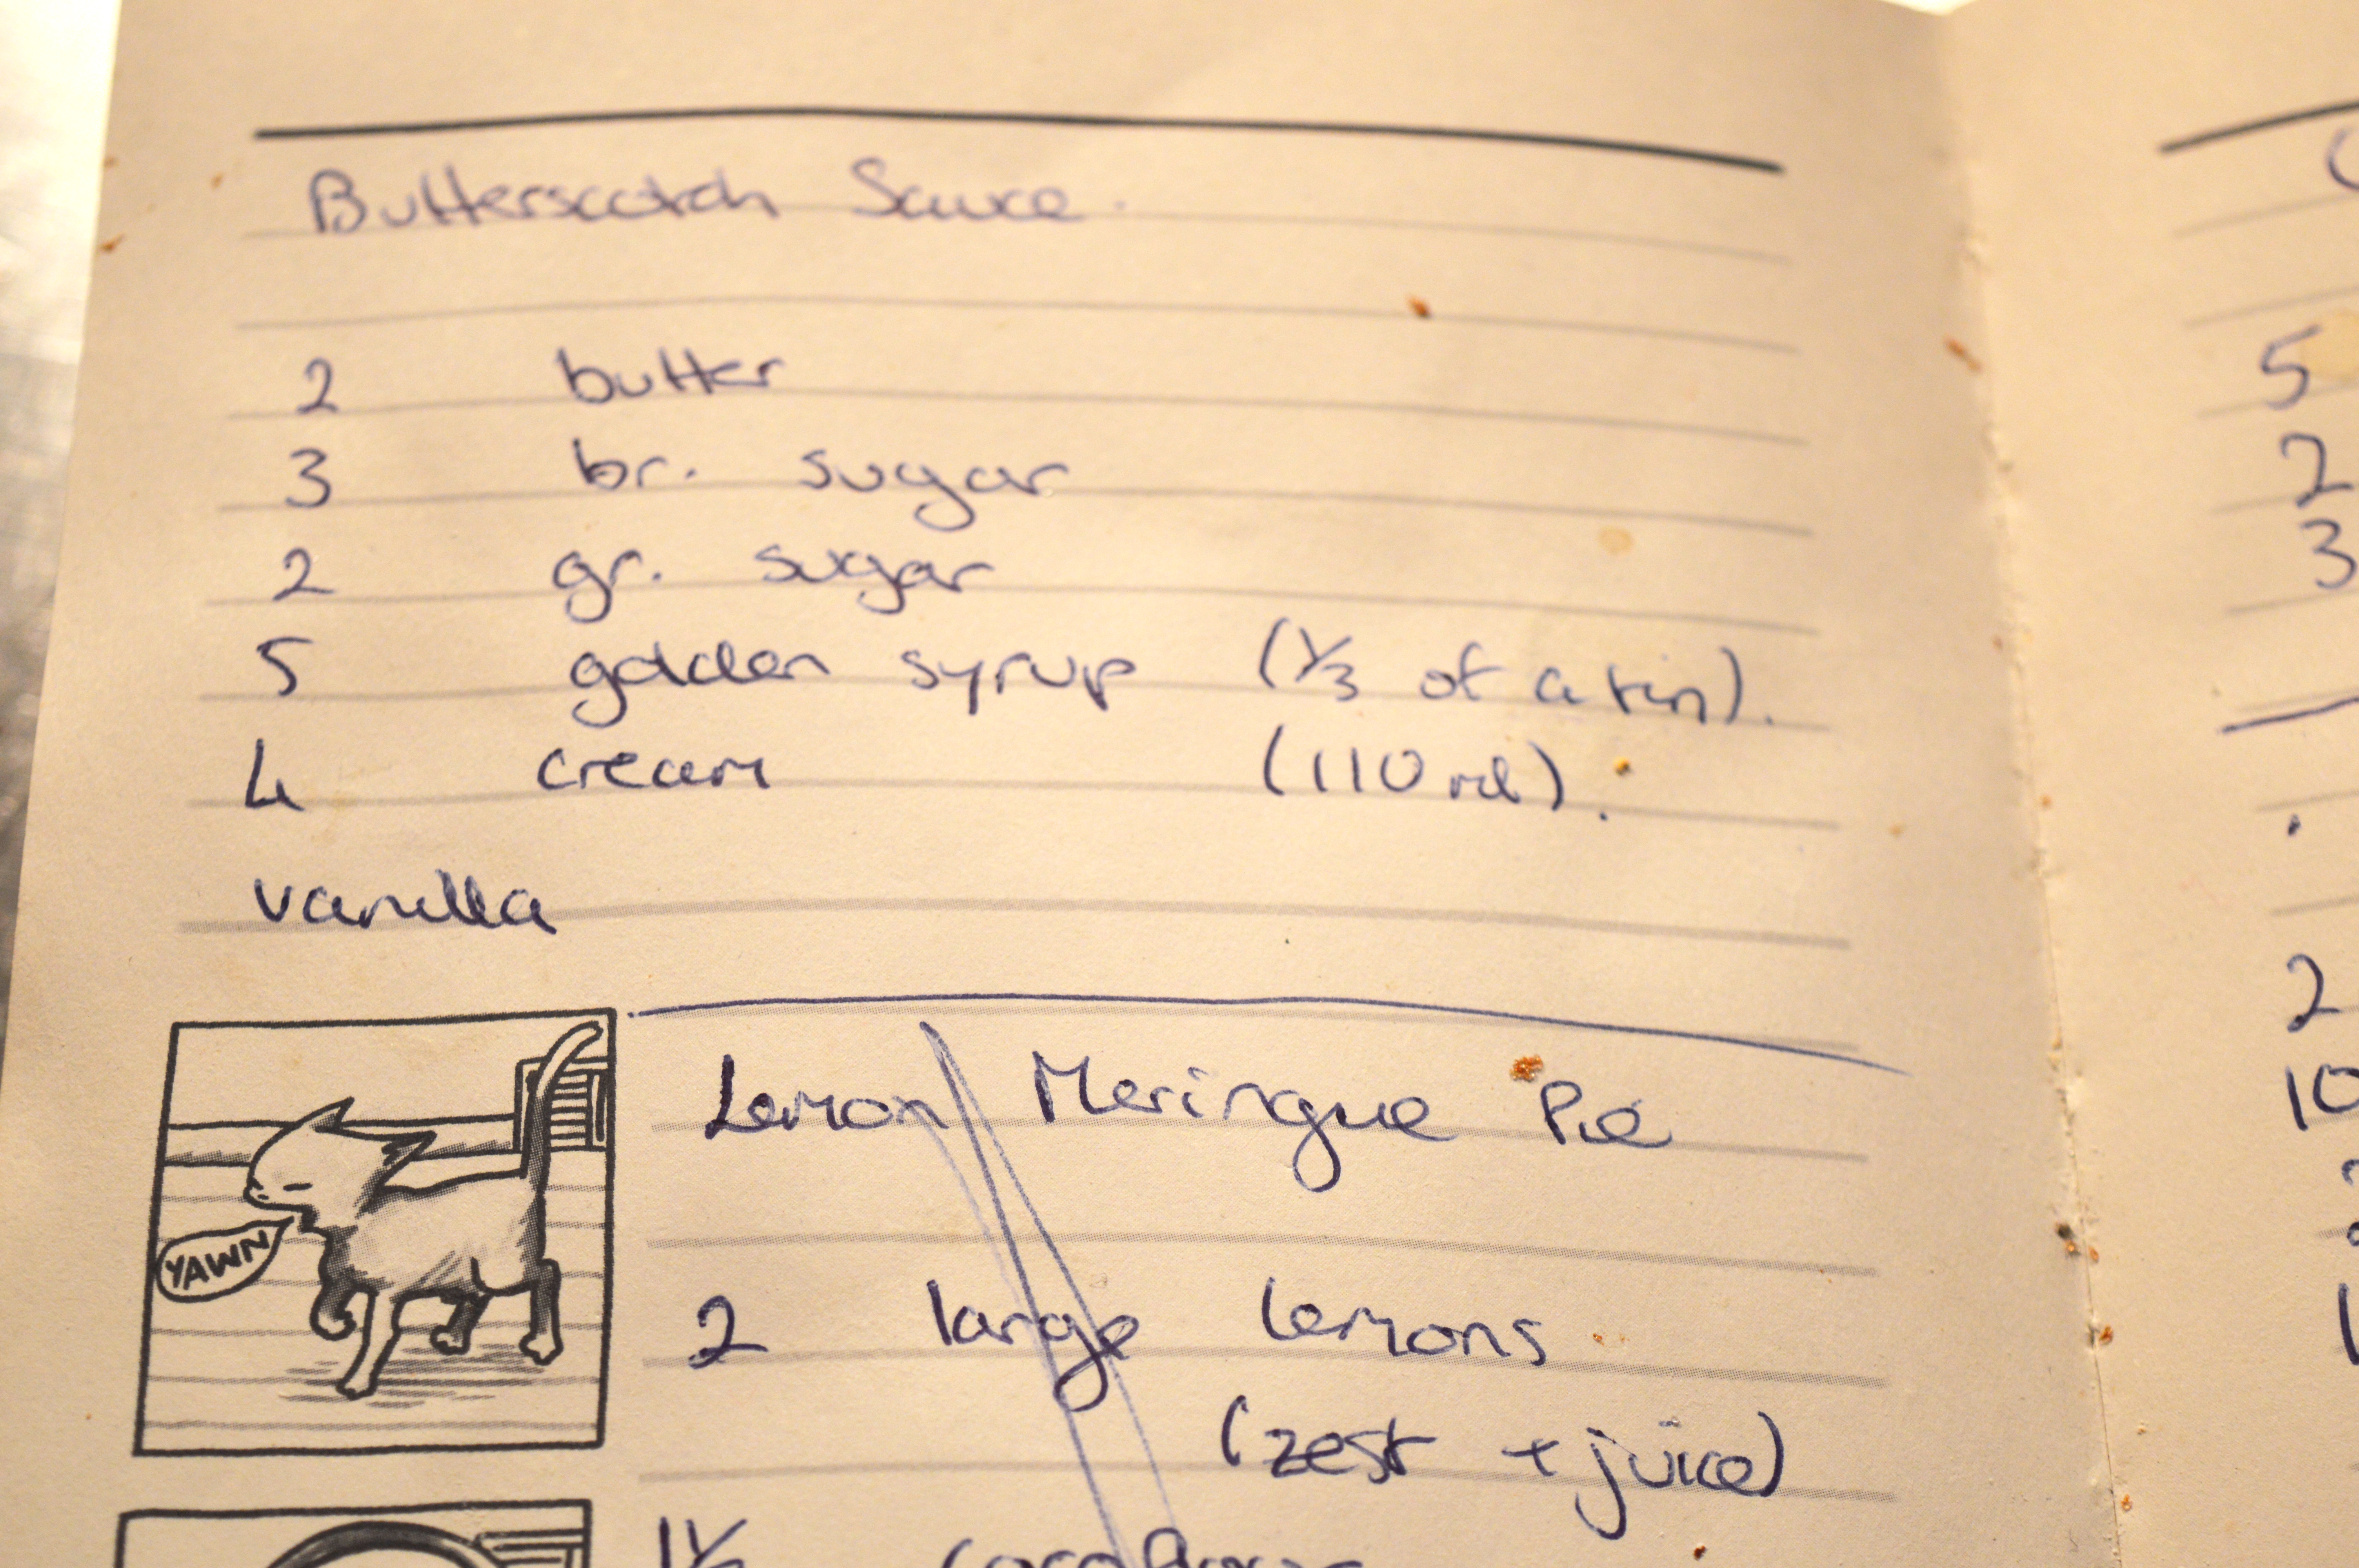 Butterscotch Sauce.
2 butter
3 br. sugar
2 gr. sugar
5 golden syrup (1/3 of a tin).
4 cream (110 ml).
vanilla
YAWN
Lemon Meringue Pie
2 large lemons
(zest + juice)
5
2
3
2
10